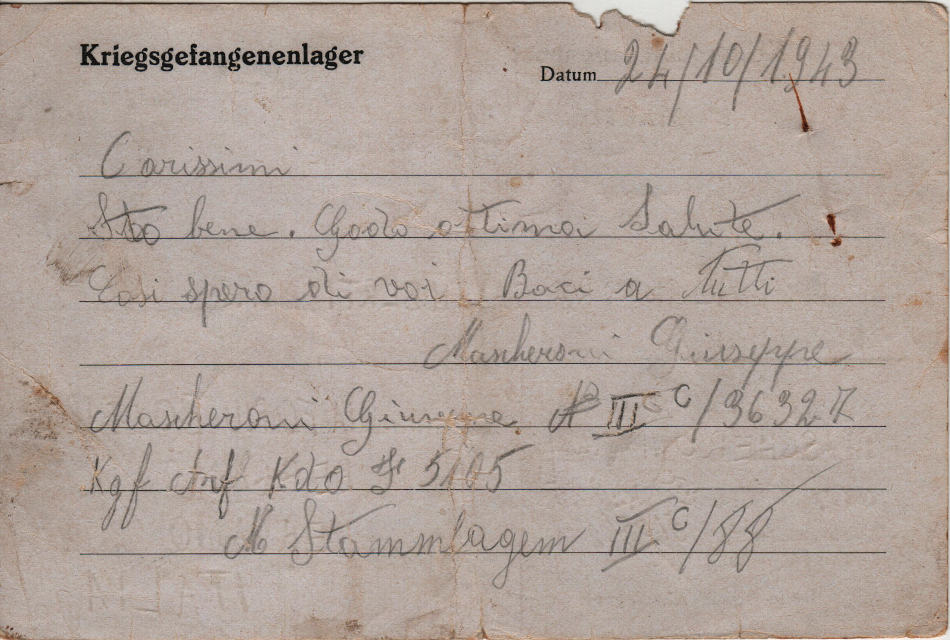 Kriegsgefangenenlager
Datum 24/10/1943
Carissimi
Sto bene. Godo ottima Salute.
Cosi spero di voi Baci a tutti
Mascheroni Giuseppe
Mascheroni Giuseppe III C / 36327
Kgf Arf Kdo 5105
M Stammlagem III C/88